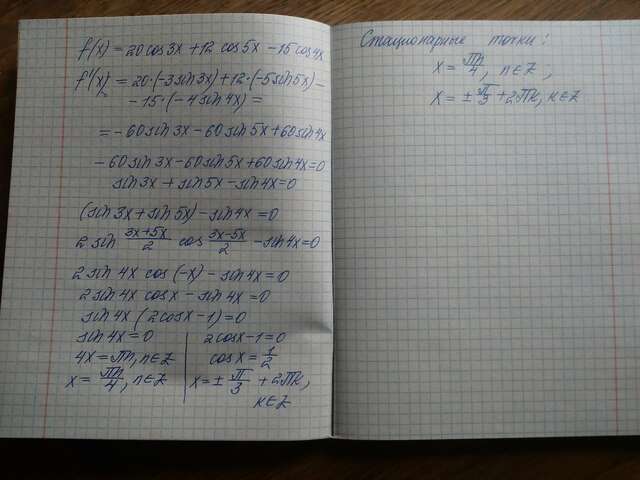 f(x) = 20 cos 3x + 12 cos 5x - 15 cos 4x
f'(x) = 20·(-3 sin 3x) + 12·(-5 sin 5x) -
- 15·(-4 sin 4x) =
= -60 sin 3x - 60 sin 5x + 60 sin 4x
-60 sin 3x - 60 sin 5x + 60 sin 4x = 0
sin 3x + sin 5x - sin 4x = 0
(sin 3x + sin 5x) - sin 4x = 0
2 sin (3x+5x)/2 cos (3x-5x)/2 - sin 4x = 0
2 sin 4x cos(-x) - sin 4x = 0
2 sin 4x cos x - sin 4x = 0
sin 4x (2cos x - 1) = 0
sin 4x = 0
4x = πn, n∈Z
x = πn/4, n∈Z
2cos x - 1 = 0
cos x = 1/2
x = ± π/3 + 2πk,
k∈Z
Стационарные точки:
x = πn/4, n∈Z;
x = ± π/3 + 2πk, k∈Z